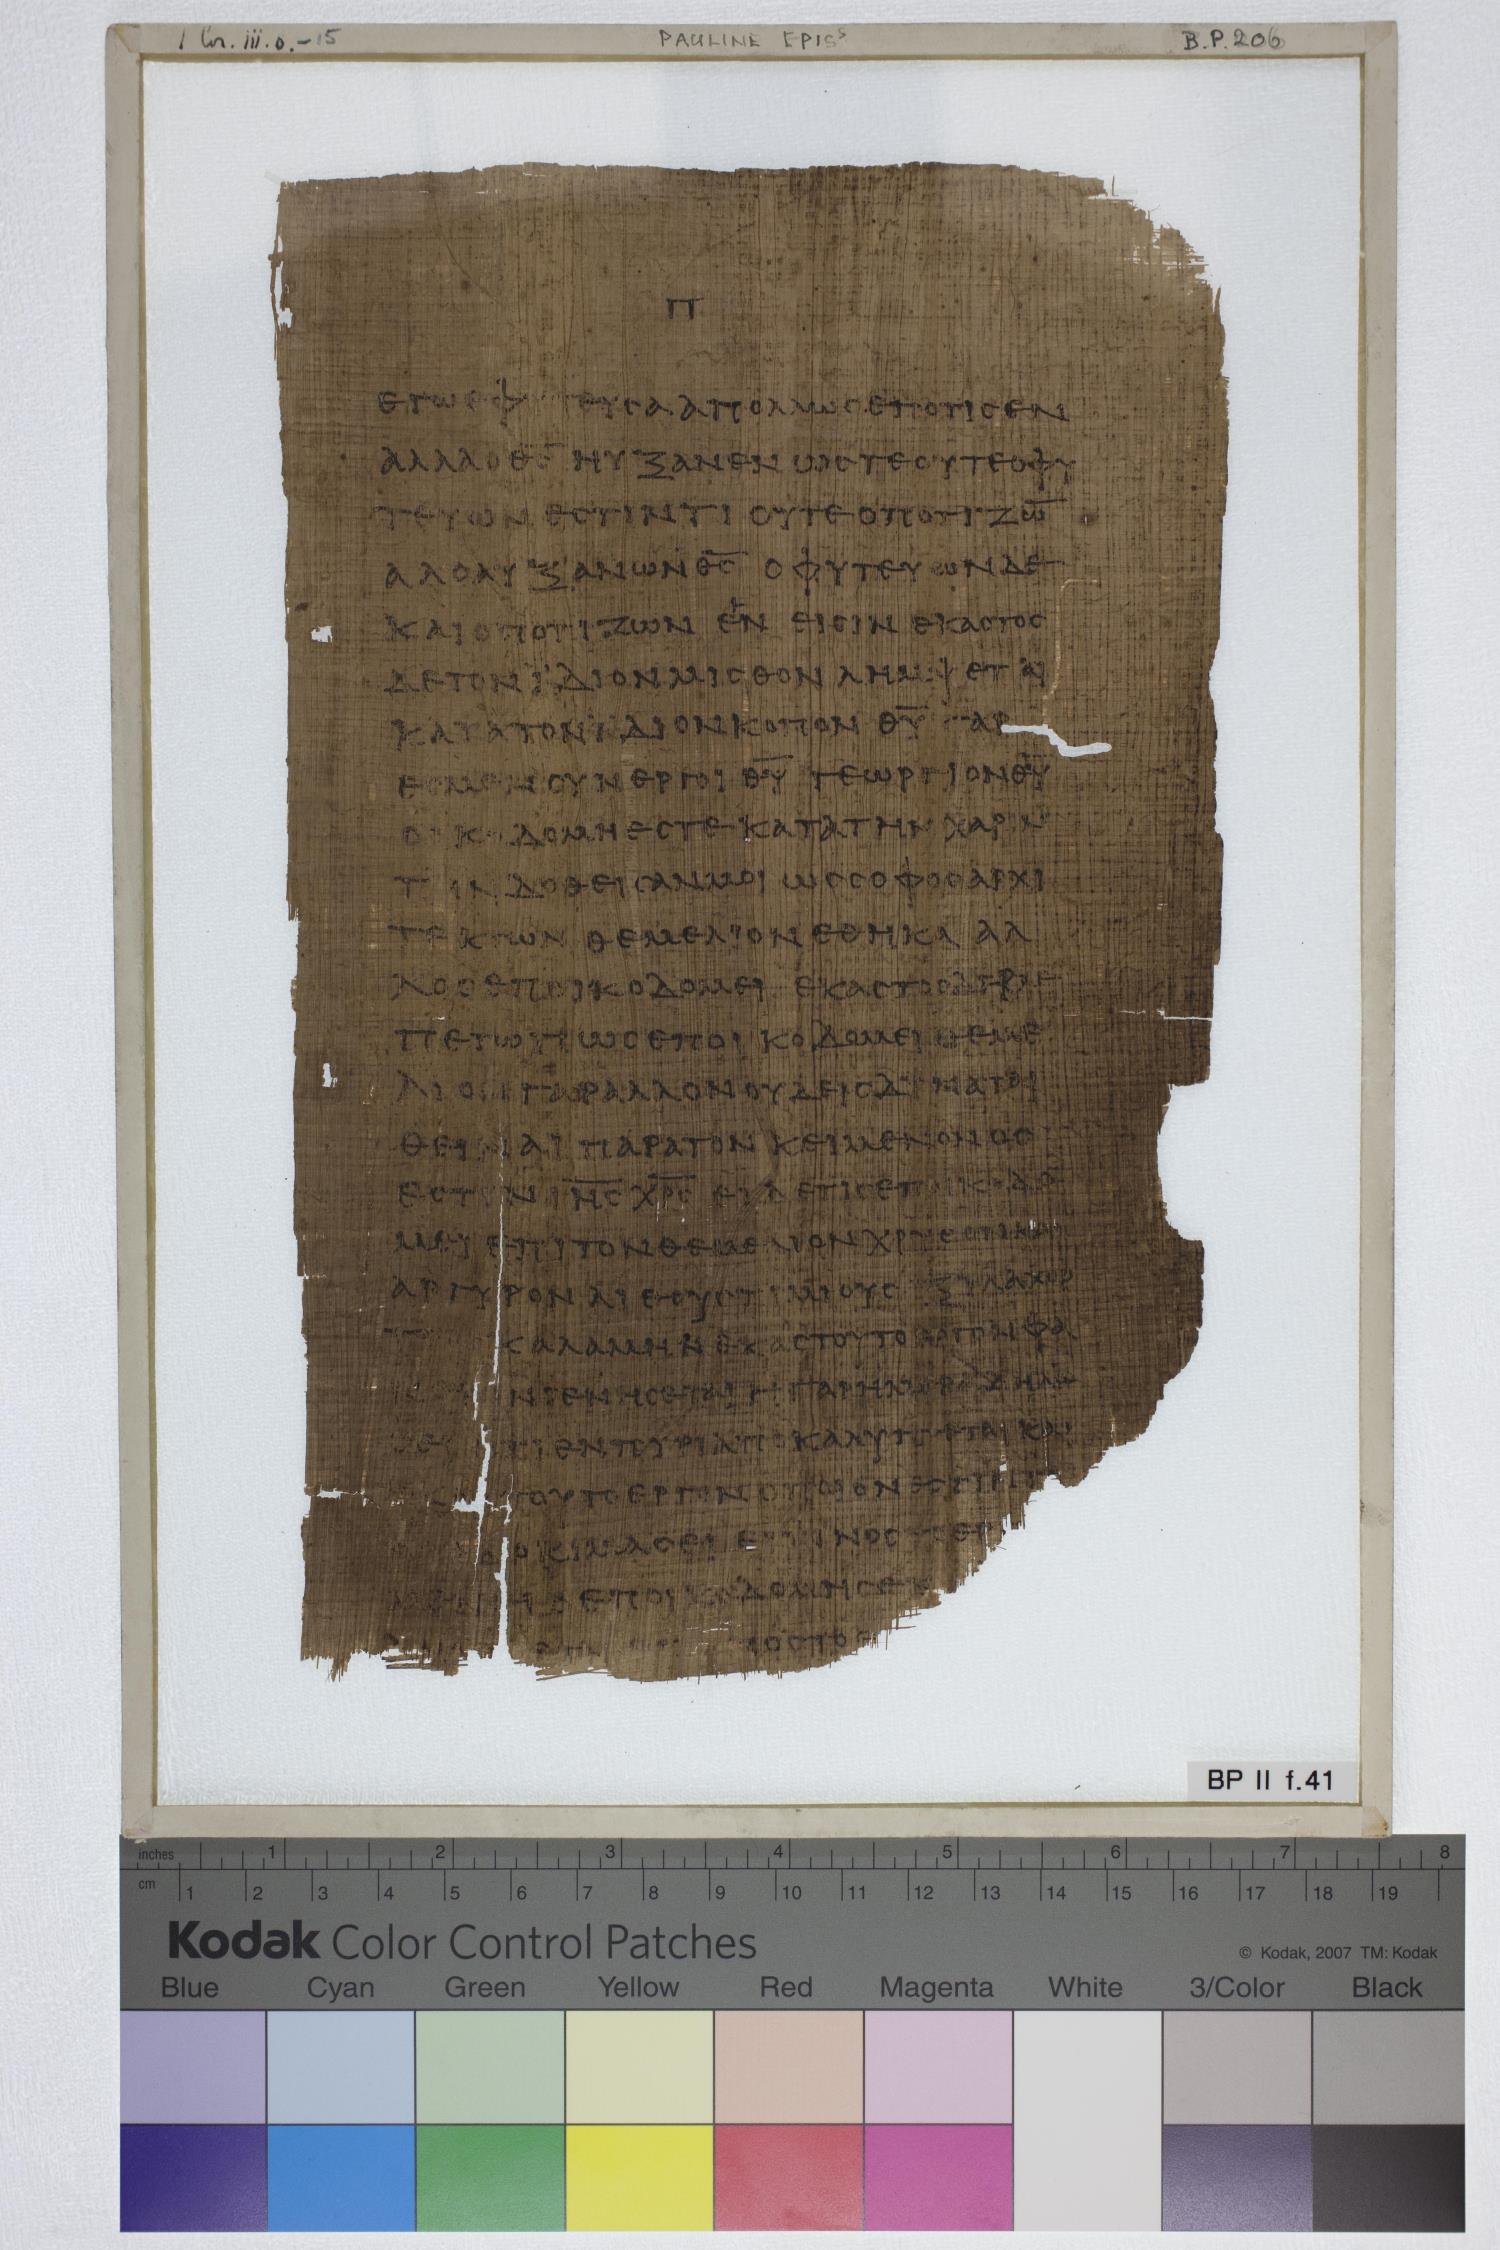 1 Cor. iii. 6.-15 PAULINE EPISS B.P.206
π
εγωεφ τευσααπολλωσεποτισεν
αλλαοθ̅ς̅ ηυξανεν ωστεουτεοφυ
τευων εστιντι ουτεοποτιζω̅
αλοαυξανωνθ̅ς̅ οφυτευωνδε
καιοποτιζων εν εισιν εκαστος
δετονϊδιονμισθονλημψεται
κατατονϊδιονκοπον θ̅υ̅ γαρ
εσμενσυνεργοι θ̅υ̅ γεωργιονθ̅υ̅
οικοδομηεστεκατατηνχαριν
τ ινδοθεισανμοι ωσσοφοσαρχι
τεκτων θεμελιονεθηκα αλ
λοσεποικοδομει εκαστοσδεβλε
πετωπωσεποικοδομειθεμε
λιονγαραλλονουδεισδυναται
θειναιπαρατονκειμενονος
εστιν ι̅η̅ς̅ χ̅ρ̅ς̅ ειδετισεποικοδο
μειεπιτονθεμελιονχρυσ
αργυρονλιθουστιμιους ξυλαχορ
καλαμηνεκαστουτοεργονφα
νγενησεταιηγαρημεραδηλω
ενπυριαποκαλυπτεταικαι
τουτοεργονοποιονεστιν
δοκιμασει ει τινοστοερ
μενειοεποικοδομησε
οστο
BP II f.41
inches 1 2 3 4 5 6 7 8
cm 1 2 3 4 5 6 7 8 9 10 11 12 13 14 15 16 17 18 19
Kodak Color Control Patches © Kodak, 2007 TM: Kodak
Blue Cyan Green Yellow Red Magenta White 3/Color Black